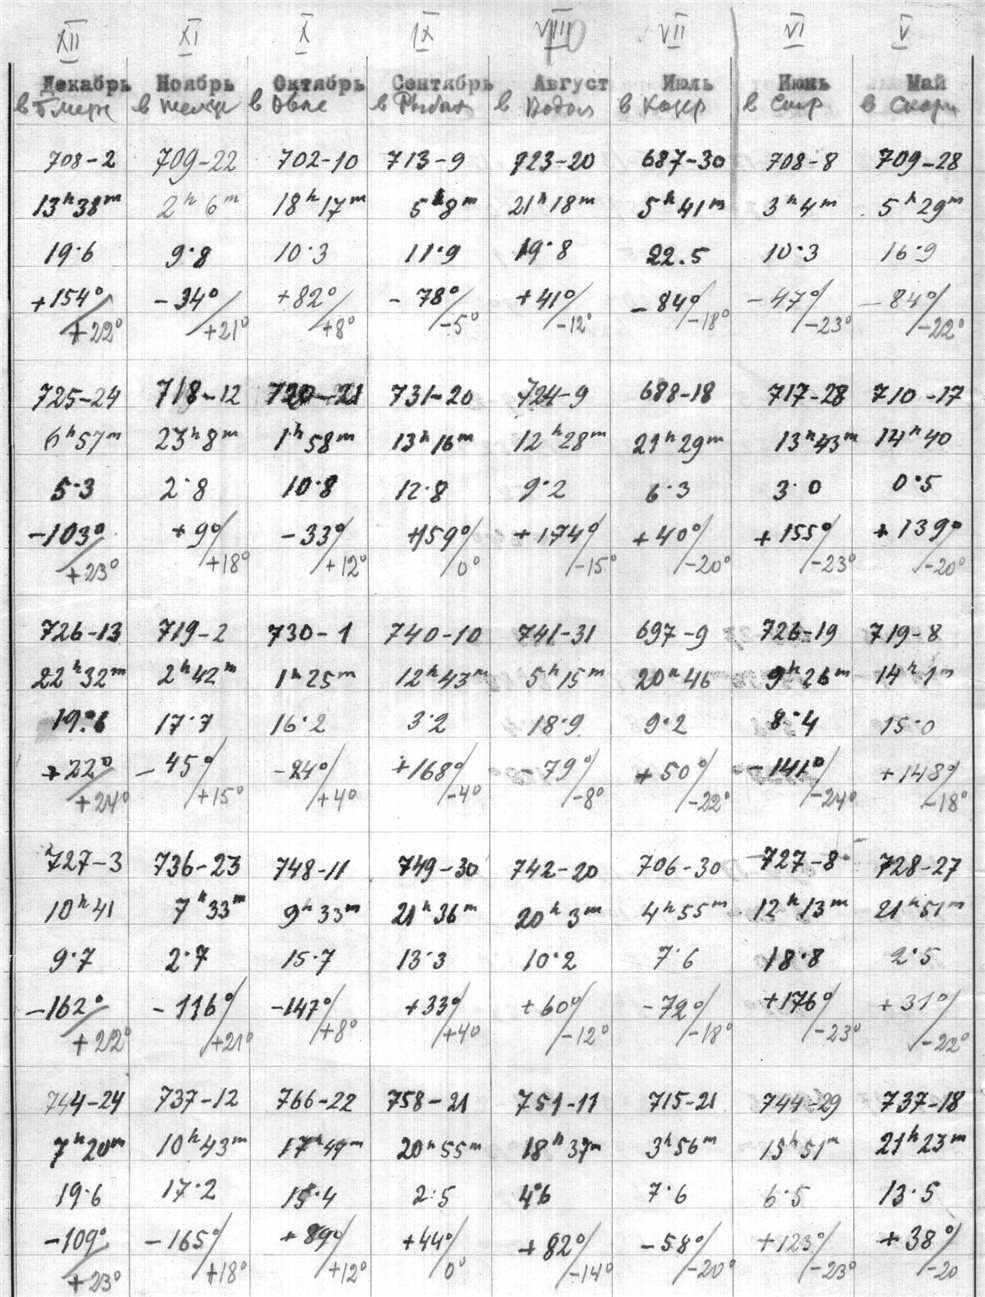 XII XI X IX VIII VII VI V
Декабрь Ноябрь Октябрь Сентябрь Август Июль Июнь Май
в в в Овне в Рыбах в Водол в Козер в в Скорп
708-2 709-22 702-10 713-9 723-20 687-30 708-8 709-28
13h38m 2h6m 18h17m 5h8m 21h18m 5h41m 3h4m 5h29m
19.6 9.8 10.3 11.9 19.8 22.5 10.3 16.9
+154° -34° +82° -78° +41° -84° -47° -84°
+22° +21° +8° -5° -12° -18° -23° -22°
725-24 718-12 720-21 731-20 724-9 688-18 717-28 710-17
6h57m 23h8m 1h58m 13h16m 12h28m 21h29m 13h43m 14h40
5.3 2.8 10.8 12.8 9.2 6.3 3.0 0.5
-103° +9° -33° +159° +174° +40° +155° +139°
+23° +18° +12° 0° -15° -20° -23° -20°
726-13 719-2 730-1 740-10 741-31 697-9 726-19 719-8
22h32m 2h42m 1h25m 12h43m 5h15m 20h46 9h26m 14h1m
19.6 17.7 16.2 3.2 18.9 9.2 8.4 15.0
+22° -45° -24° +168° -79° +50° -141° +148°
+24° +15° +4° -4° -8° -22° -24° -18°
727-3 736-23 748-11 749-30 742-20 706-30 727-8 728-27
10h41 7h33m 9h33m 21h36m 20h3m 4h55m 12h13m 21h51m
9.7 2.7 15.7 13.3 10.2 7.6 18.8 2.5
-162° -116° -147° +33° +60° -72° +176° +31°
+22° +21° +8° +4° -12° -18° -23° -22°
744-24 737-12 766-22 758-21 751-11 715-21 744-29 737-18
7h20m 10h43m 17h49m 20h55m 18h37m 3h56m 15h51m 21h23m
19.6 17.2 15.4 2.5 4.6 7.6 6.5 13.5
-109° -165° +89° +44° +82° -58° +123° +38°
+23° +18° +12° 0° -14° -20° -23° -20